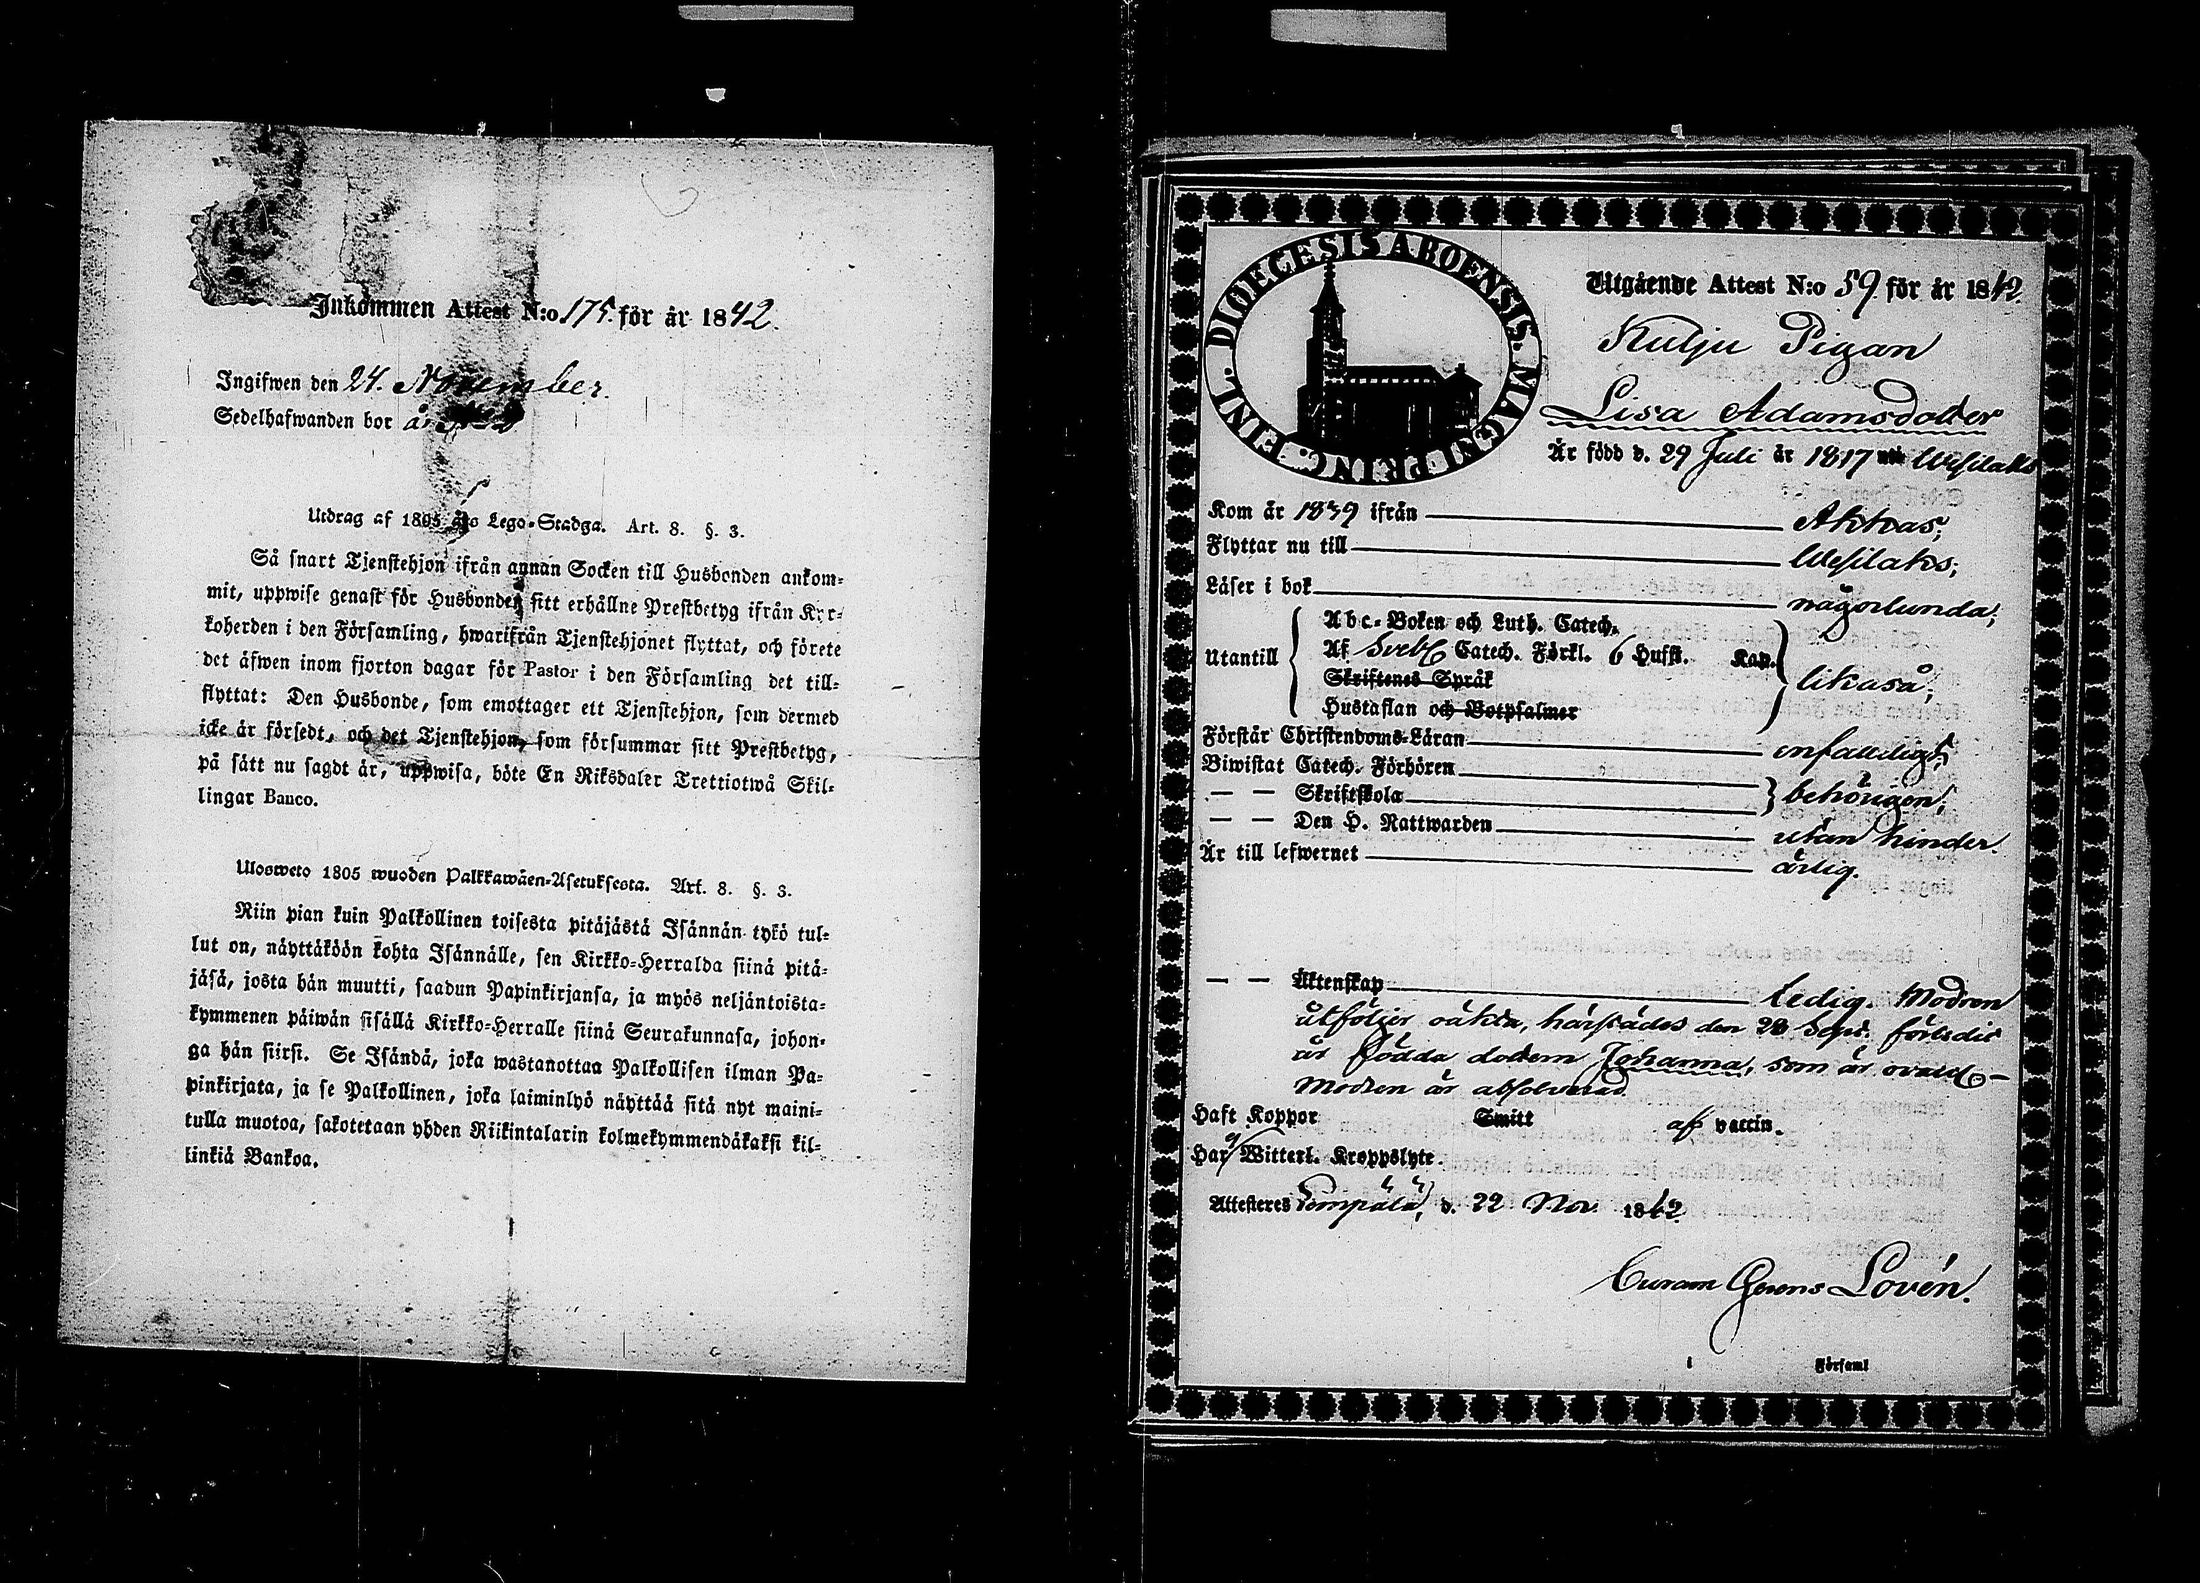 Inkommen Attest N:o 175. för år 1842.
Ingifwen den 24. November.
Sedelhafwanden bor å
Utdrag af 1805 års Lego-Stadga. Art. 8. §. 3.
Så snart Tjenstehjon ifrån annan Socken till Husbonden ankom-
mit, uppwise genast för Husbonden sitt erhållne Prestbetyg ifrån Kyr-
koherden i den Församling, hwarifrån Tjenstehjonet flyttat, och förete
det äfwen inom fjorton dagar för Pastor i den Församling det till-
flyttat: Den Husbonde, som emottager ett Tjenstehjon, som dermed
icke är försedt, och det Tjenstehjon, som försummar sitt Prestbetyg,
på sätt nu sagdt är, uppwisa, böte En Riksdaler Trettiotwå Skil-
lingar Banco.
Ulosweto 1805 wuoden Palkkawäen-Asetuksesta. Art. 8. §. 3.
Niin pian kuin Palkollinen toisesta pitäjästä Isännän tykö tul-
lut on, näyttäköön kohta Isännälle, sen Kirkko-Herralda siinä pitä-
jäsä, josta hän muutti, saadun Papinkirjansa, ja myös neljäntoista-
kymmenen päiwän sisällä Kirkko-Herralle siinä Seurakunnasa, johon-
ga hän siirsi. Se Isändä, joka wastanottaa Palkollisen ilman Pa-
pinkirjata, ja se Palkollinen, joka laiminlyö näyttää sitä nyt maini-
tulla muotoa, sakotetaan yhden Riikintalarin kolmekymmendäkaksi kil-
linkiä Bankoa.
DIOECESIS ABOENSIS. MAGNI PRINC. FINL.
Utgående Attest N:o 59 för år 1842.
Kulju Pigan
Lisa Adamsdotter
Är född d. 29 Juli år 1817 uti Wesilaks
Kom år 1839 ifrån Akkas;
Flyttar nu till Wesilaks;
Läser i bok någorlunda;
Utantill
Abc-Boken och Luth. Catech.
Af Sveb. Catech. Förkl. 6 Hufst. Kap.
Skriftenes Språk
Hustaflan och Botpsalmer
likaså;
Förstår Christendoms-Läran enfalldigt;
Biwistat Catech. Förhören
— — Skriftskola behörigen;
— — Den H. Nattwarden utan hinder.
Är till lefwernet ärlig.
— — Äktenskap ledig. Modren
utföljer oäkta, härstädes den 28 Sept. förledit
år födda dottern Johanna, som är ovacc. –
Modren är absolverad.
Haft Koppor Smitt af vaccin.
Har ej Witterl. Kroppslyte.
Attesteres Lempälä, d. 22 Nov. 1842
Curam Gerens Lovén.
i Församl